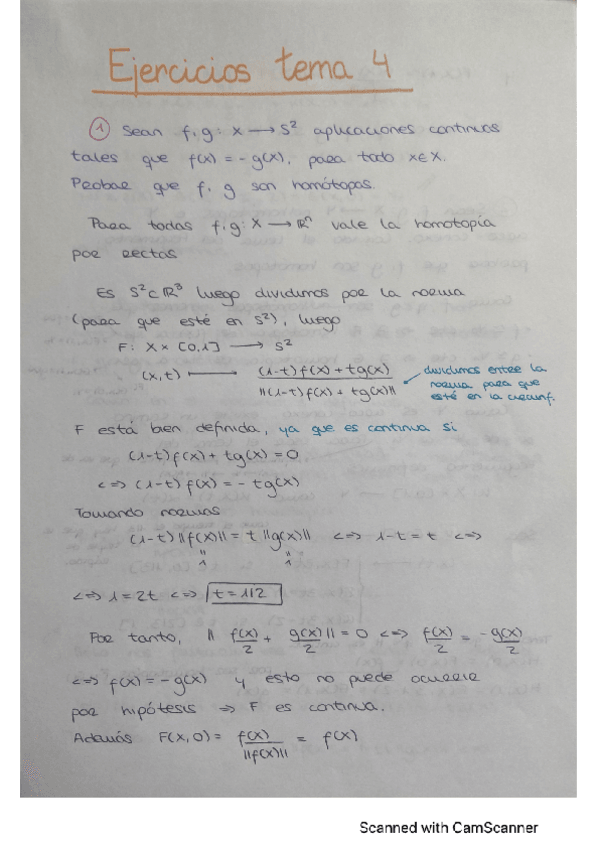 Ejercicios tema 4
① Sean f, g: X ⟶ S² aplicaciones continuas
tales que f(x) = - g(x), para todo x ∈ X.
Probar que f, g son homótopas.
Para todas f, g: X ⟶ ℝⁿ vale la homotopía
por rectas
Es S² ⊂ ℝ³ luego dividimos por la norma
(para que esté en S²), luego
F: X × [0,1] ⟶ S²
(x,t) ⟼ (1-t) f(x) + t g(x) / ||(1-t) f(x) + t g(x)||
dividimos entre la
norma para que
esté en la circunf.
F está bien definida, ya que es continua si
(1-t) f(x) + t g(x) = 0
<=> (1-t) f(x) = - t g(x)
Tomando normas
(1-t) ||f(x)|| = t ||g(x)|| <=> 1-t = t <=>
" "
1 1
<=> 1 = 2t <=> t = 1/2
Por tanto, || f(x)/2 + g(x)/2 || = 0 <=> f(x)/2 = -g(x)/2
<=> f(x) = - g(x) y esto no puede ocurrir
por hipótesis => F es continua.
Además F(x,0) = f(x)/||f(x)|| = f(x)
Scanned with CamScanner